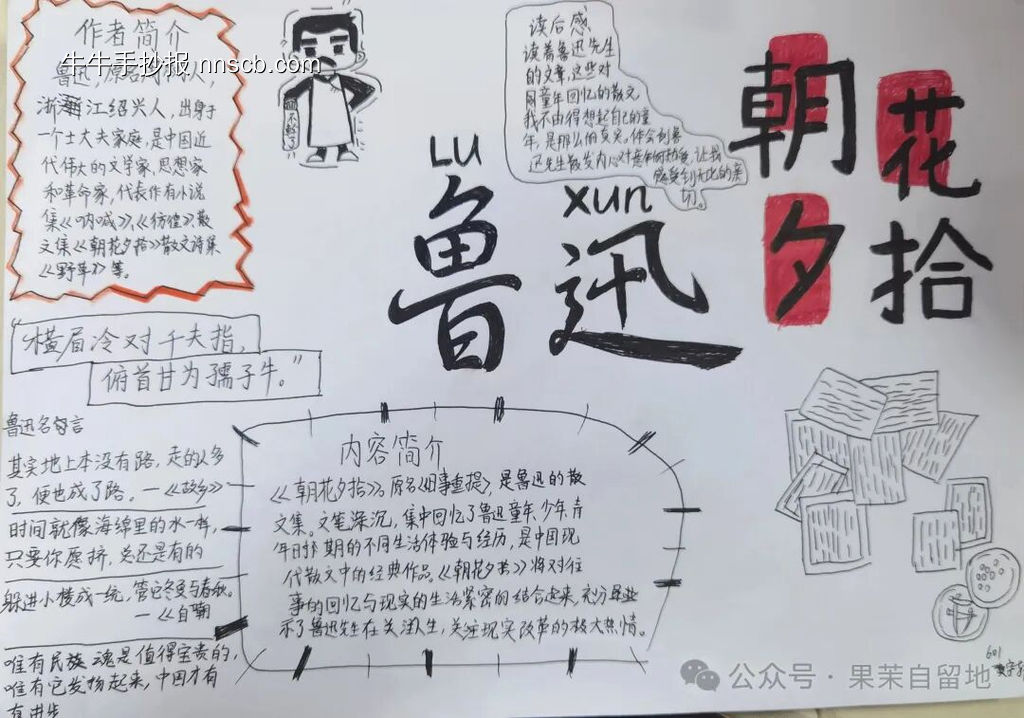 作者简介
牛牛手抄报 nnscb.com
浙江绍兴人,出身于
一个士大夫家庭,是中国近
代伟大的文学家、思想家
和革命家,代表作有小说
集《呐喊》、《彷徨》、散
文集《朝花夕拾》散文诗集
《野草》等。
读后感
读着鲁迅先生
的文章,这些对
童年回忆的散文,
我不由得想起自己的童
年,是那么的真实。体会到鲁
迅先生散发内心对童年的
感受到无比的亲
切。
LU
xun
鲁迅
朝花
夕拾
“横眉冷对千夫指,
俯首甘为孺子牛。”
鲁迅名句言
其实地上本没有路,走的人多
了,便也成了路。—《故乡》
时间就像海绵里的水一样,
只要你愿挤,总还是有的
躲进小楼成一统,管它冬夏与春秋。
—《自嘲
唯有民族魂是值得宝贵的,
唯有它发扬起来,中国才有
有进步
内容简介
《朝花夕拾》。原名《旧事重提》,是鲁迅的散
文集。文笔深沉,集中回忆了鲁迅童年、少年、青
年时期的不同生活体验与经历,是中国现
代散文中的经典作品。《朝花夕拾》将对往
事的回忆与现实的生活紧密的结合起来,充分
示了鲁迅先生在关注人生,关注现实改革的极大热情。
601
公众号·果茉自留地